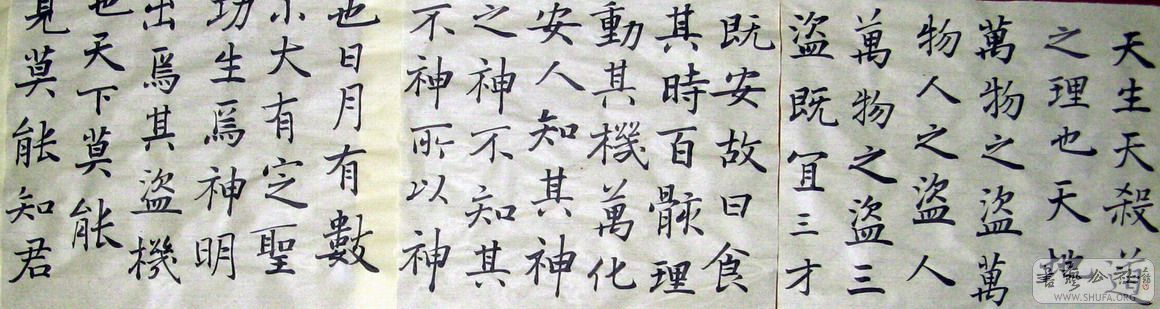 天生天殺道
之理也天地
萬物之盜萬
物人之盜人
萬物之盜三
盜既宜三才
既安故曰食
其時百骸理
動其機萬化
安人知其神
之神不知其
不神所以神
也日月有數
小大有定聖
功生焉神明
出焉其盜機
也天下莫能
見莫能知君
書藝公社
WWW.SHUFA.ORG